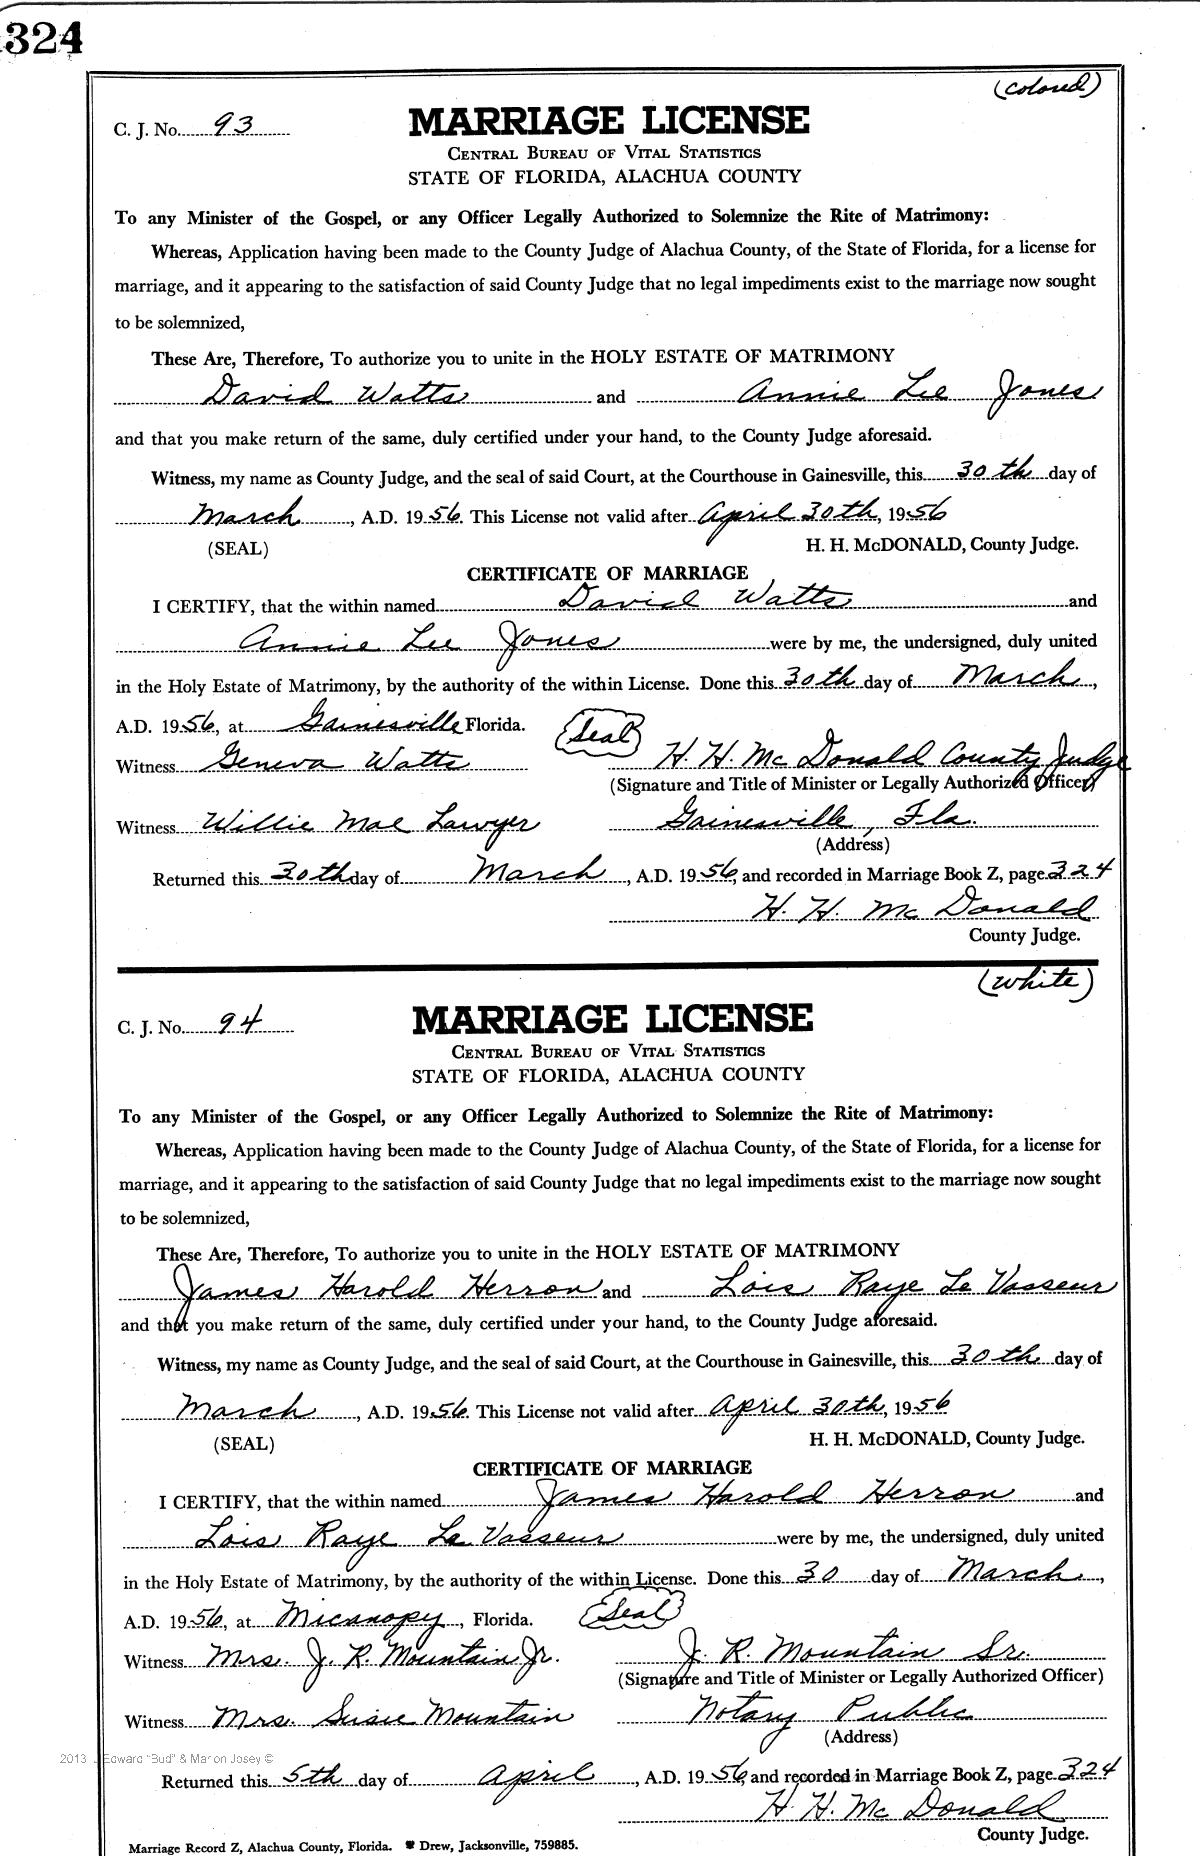 324
(colored)
C. J. No. 93
MARRIAGE LICENSE
CENTRAL BUREAU OF VITAL STATISTICS
STATE OF FLORIDA, ALACHUA COUNTY
To any Minister of the Gospel, or any Officer Legally Authorized to Solemnize the Rite of Matrimony:
Whereas, Application having been made to the County Judge of Alachua County, of the State of Florida, for a license for
marriage, and it appearing to the satisfaction of said County Judge that no legal impediments exist to the marriage now sought
to be solemnized,
These Are, Therefore, To authorize you to unite in the HOLY ESTATE OF MATRIMONY
David Watts and Annie Lee Jones
and that you make return of the same, duly certified under your hand, to the County Judge aforesaid.
Witness, my name as County Judge, and the seal of said Court, at the Courthouse in Gainesville, this 30th day of
March, A.D. 1956. This License not valid after April 30th, 1956
(SEAL) H. H. McDONALD, County Judge.
CERTIFICATE OF MARRIAGE
I CERTIFY, that the within named David Watts and
Annie Lee Jones were by me, the undersigned, duly united
in the Holy Estate of Matrimony, by the authority of the within License. Done this 30th day of March,
A.D. 1956, at Gainesville Florida. Seal
Witness Geneva Watts H. H. Mc Donald County Judge
(Signature and Title of Minister or Legally Authorized Officer)
Witness Willie Mae Lawyer Gainesville, Fla.
(Address)
Returned this 30th day of March, A.D. 1956, and recorded in Marriage Book Z, page 324
H. H. Mc Donald
County Judge.
(white)
C. J. No. 94
MARRIAGE LICENSE
CENTRAL BUREAU OF VITAL STATISTICS
STATE OF FLORIDA, ALACHUA COUNTY
To any Minister of the Gospel, or any Officer Legally Authorized to Solemnize the Rite of Matrimony:
Whereas, Application having been made to the County Judge of Alachua County, of the State of Florida, for a license for
marriage, and it appearing to the satisfaction of said County Judge that no legal impediments exist to the marriage now sought
to be solemnized,
These Are, Therefore, To authorize you to unite in the HOLY ESTATE OF MATRIMONY
James Harold Herron and Lois Raye Le Vasseur
and that you make return of the same, duly certified under your hand, to the County Judge aforesaid.
Witness, my name as County Judge, and the seal of said Court, at the Courthouse in Gainesville, this 30th day of
March, A.D. 1956. This License not valid after April 30th, 1956
(SEAL) H. H. McDONALD, County Judge.
CERTIFICATE OF MARRIAGE
I CERTIFY, that the within named James Harold Herron and
Lois Raye Le Vasseur were by me, the undersigned, duly united
in the Holy Estate of Matrimony, by the authority of the within License. Done this 30 day of March,
A.D. 1956, at Micanopy, Florida. Seal
Witness Mrs. J. R. Mountain Jr. J. R. Mountain Sr.
(Signature and Title of Minister or Legally Authorized Officer)
Witness Mrs. Susie Mountain Notary Public
(Address)
2013 J Edward "Bud" & Marion Josey ©
Returned this 5th day of April, A.D. 1956, and recorded in Marriage Book Z, page 324
H. H. Mc Donald
County Judge.
Marriage Record Z, Alachua County, Florida. Drew, Jacksonville, 759885.